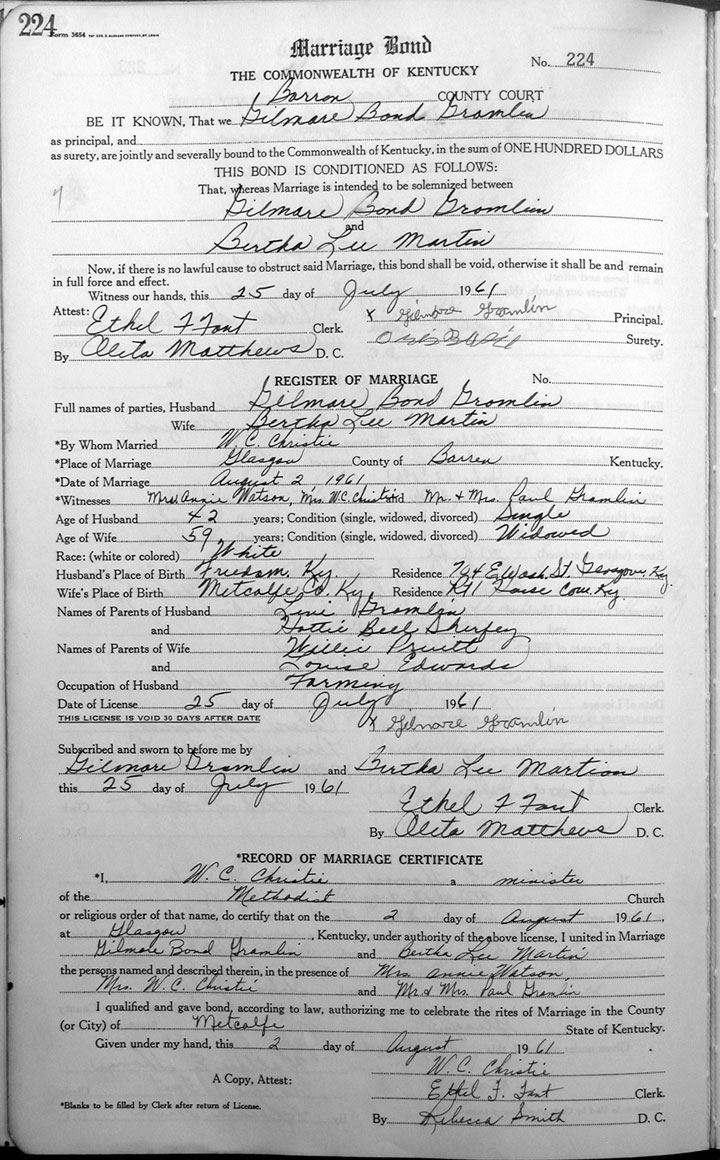 224
Form 3654
Marriage Bond
No. 224
THE COMMONWEALTH OF KENTUCKY
Barren COUNTY COURT
BE IT KNOWN, That we Gilmare Bond Gromlin
as principal, and
as surety, are jointly and severally bound to the Commonwealth of Kentucky, in the sum of ONE HUNDRED DOLLARS
THIS BOND IS CONDITIONED AS FOLLOWS:
That, whereas Marriage is intended to be solemnized between
Gilmare Bond Gromlin
and
Bertha Lee Martin
Now, if there is no lawful cause to obstruct said Marriage, this bond shall be void, otherwise it shall be and remain
in full force and effect.
Witness our hands, this 25 day of July 1961
Attest: X Gilmore Gramlin Principal.
Ethel F Fant Clerk.
Surety.
By Oleta Matthews D. C.
REGISTER OF MARRIAGE No.
Full names of parties, Husband Gilmare Bond Gromlin
Wife Bertha Lee Martin
*By Whom Married W. C. Christie
*Place of Marriage Glasgow County of Barren Kentucky.
*Date of Marriage August 2, 1961
*Witnesses Mrs. Annie Watson, Mrs. W.C. Christie and Mr. & Mrs. Paul Gramlin
Age of Husband 42 years; Condition (single, widowed, divorced) Single
Age of Wife 59 years; Condition (single, widowed, divorced) Widowed
Race: (white or colored) White
Husband's Place of Birth Freedom, Ky Residence 704 E. Wash. St. Glasgow, Ky.
Wife's Place of Birth Metcalfe Co. Ky. Residence Rt 1 Ky.
Names of Parents of Husband Gromlin
and Hattie Bell Shirley
Names of Parents of Wife Willie Pruitt
and Louise Edwards
Occupation of Husband Farming
Date of License 25 day of July 1961
THIS LICENSE IS VOID 30 DAYS AFTER DATE
X Gilmore Gramlin
Subscribed and sworn to before me by
Gilmore Gramlin and Bertha Lee Martion
this 25 day of July 1961
Ethel F Fant Clerk.
By Oleta Matthews D. C.
*RECORD OF MARRIAGE CERTIFICATE
*I, W. C. Christie a minister
of the Methodist Church
or religious order of that name, do certify that on the 2 day of August 1961,
at Glasgow, Kentucky, under authority of the above license, I united in Marriage
Gilmore Bond Gramlin and Bertha Lee Martin
the persons named and described therein, in the presence of Mrs. Annie Watson,
Mrs. W. C. Christie and Mr. & Mrs. Paul Gramlin
I qualified and gave bond, according to law, authorizing me to celebrate the rites of Marriage in the County
(or City) of Metcalfe State of Kentucky.
Given under my hand, this 2 day of August 1961
W. C. Christie
A Copy, Attest: Ethel F. Fant Clerk.
*Blanks to be filled by Clerk after return of License.
By Rebecca Smith D. C.